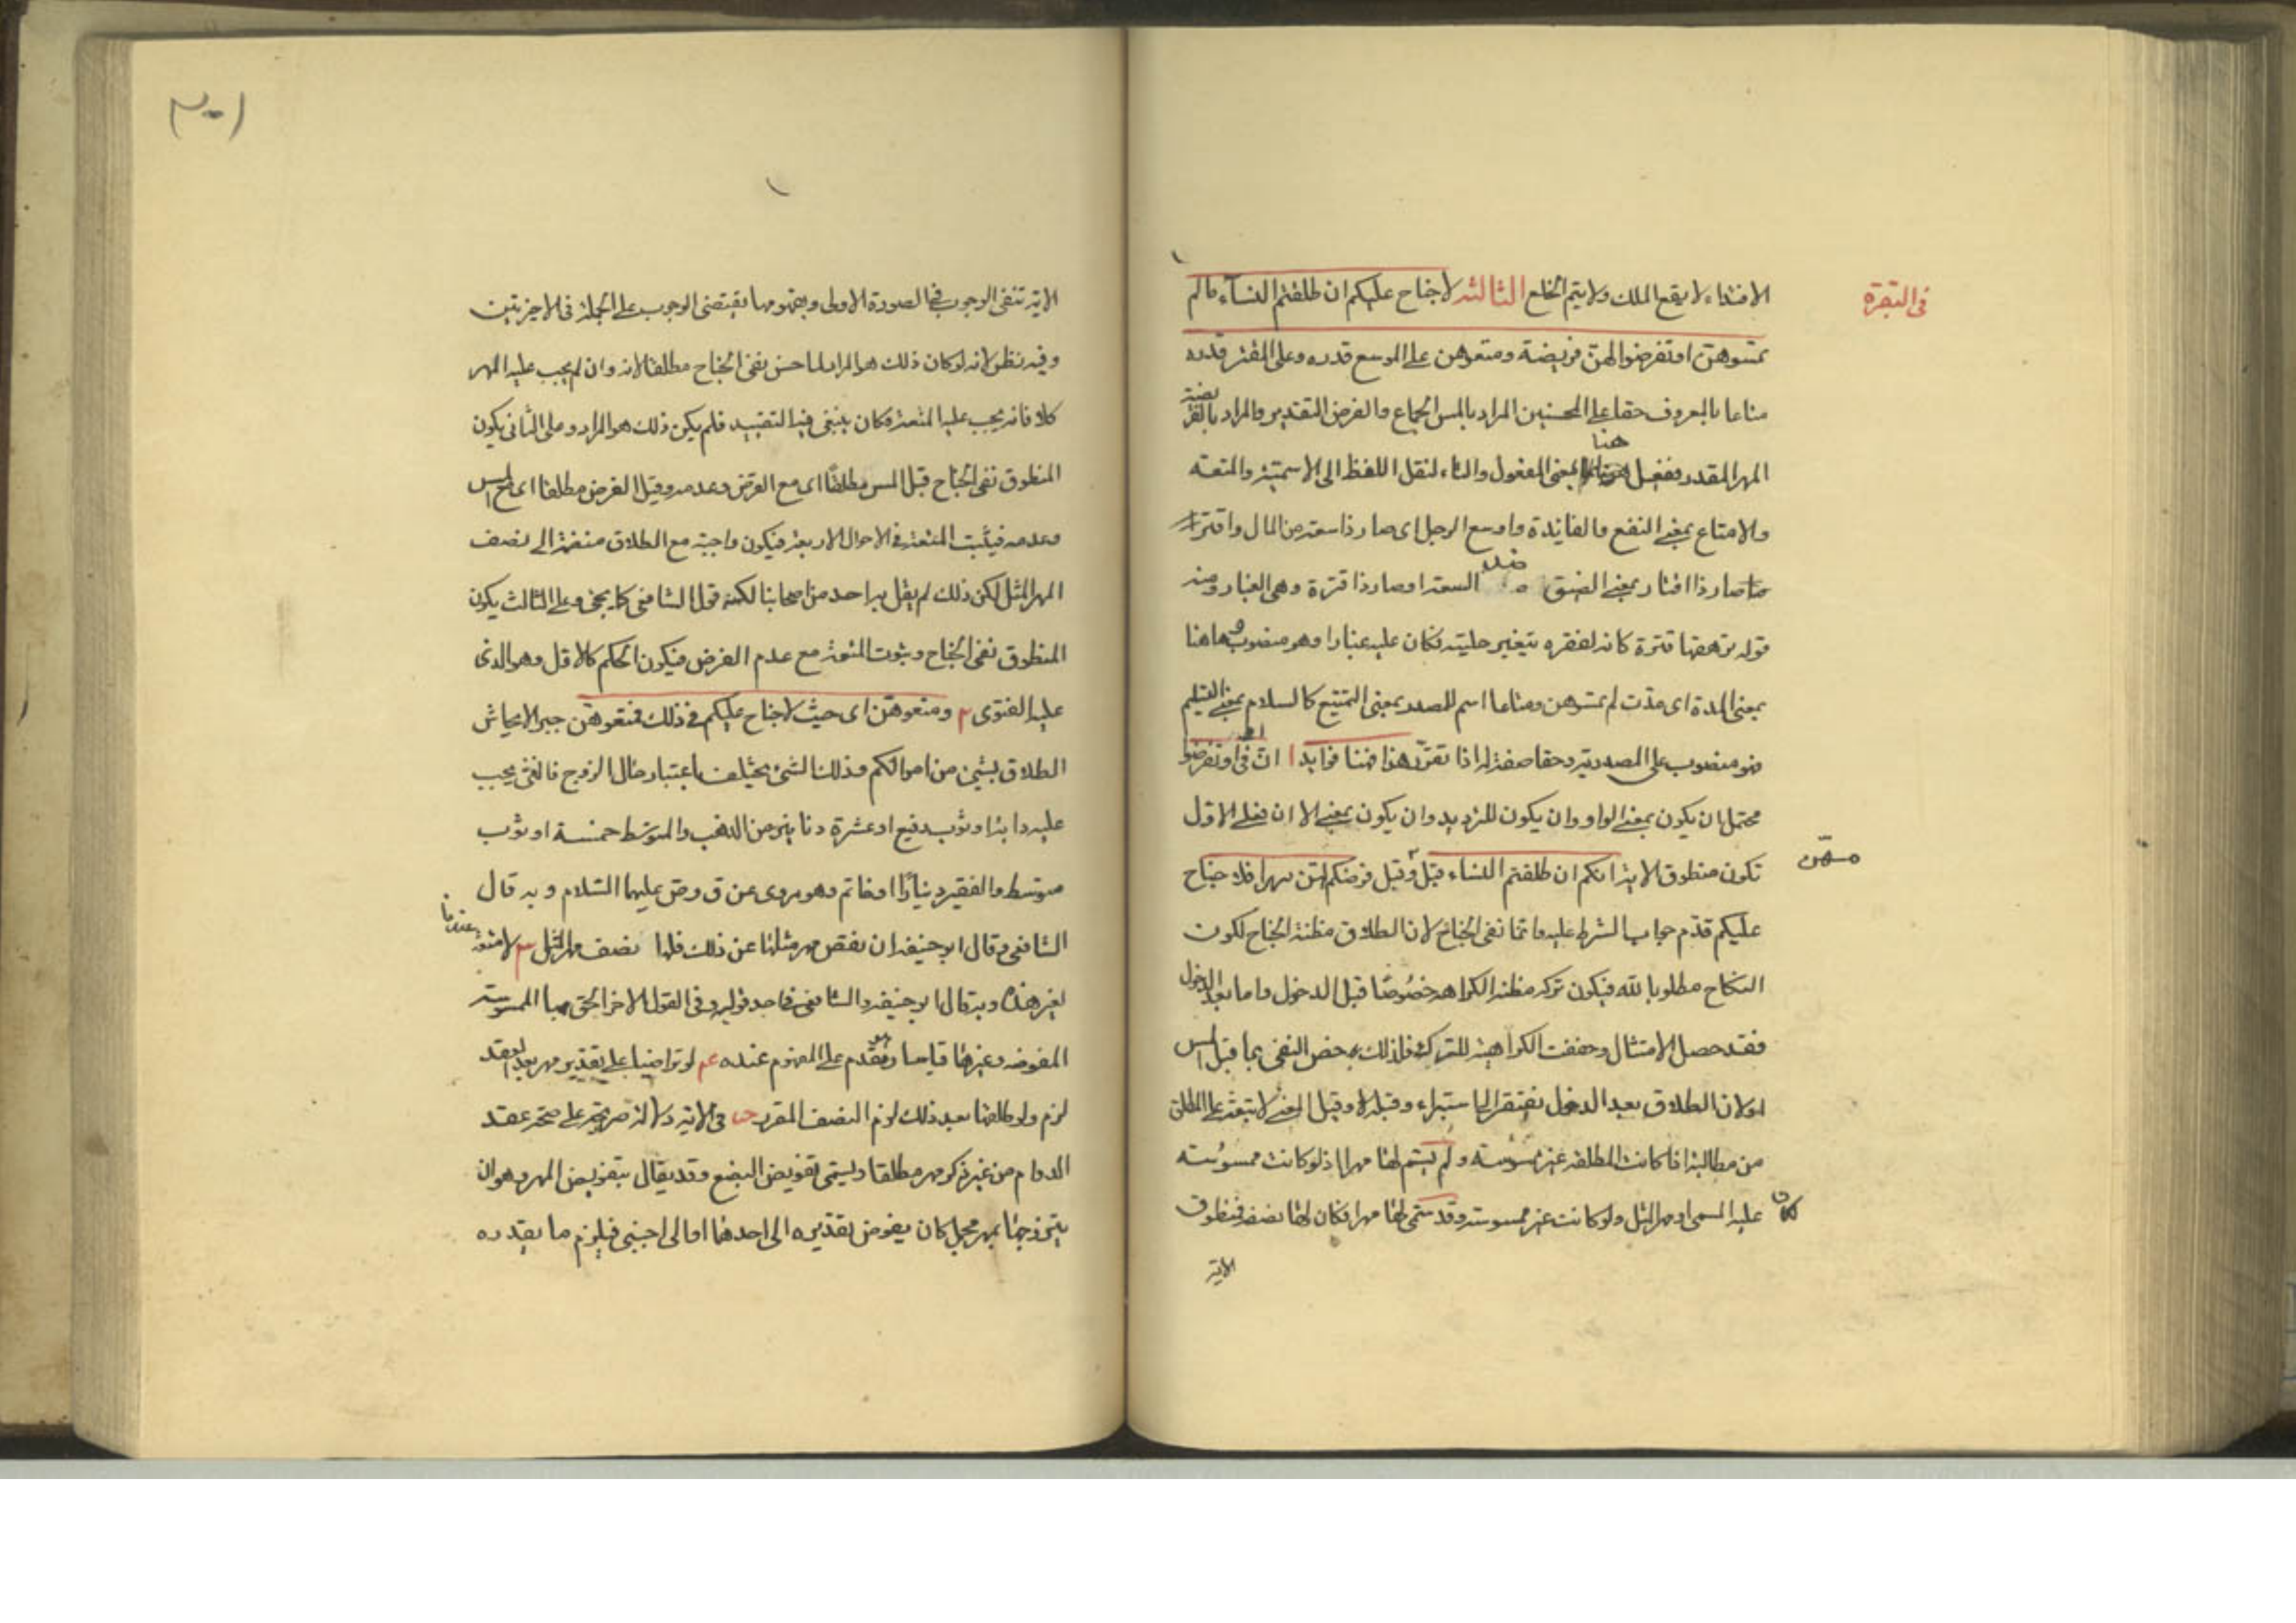 في البقرة
الافتداء لا يقع الملك ولا يتم الخلع الثالثة لا جناح عليكم ان طلقتم النسآء مالم
تمسّوهنّ او تفرضوا لهنّ فريضة ومتعوهن على الموسع قدره وعلى المقتر قدره
متاعا بالمعروف حقا على المحسنين المراد بالمس الجماع والفرض التقدير والمراد بالفريضة
المهر المقدر ففعيل هنا بمعنى المفعول والتاء لنقل اللفظ الى الاسمية والمتعه
والامتاع بمعنى النفع والفايدة واوسع الرجل اى صار ذا سعة من المال واقتر اذا
صار ذا اقتار بمعنى الضيق ضد السعة او صار ذا قترة وهى الغبار ومنه
قوله ترهقها قترة كانه لفقره يتغير حليته فكان عليه غبارا وهو منصوب وما هنا
بمعنى المدة اى مدّت لم تمسّوهن ومتاعا اسم للمصدر بمعنى التمتيع كالسلام بمعنى التسليم
فهو منصوب على المصدرية وحقا صفة له اذا تقرّر هذا فهنا فوايد ا انّ فى او تفرضوا
محتمل ان يكون بمعنى الواو وان يكون للترديد وان يكون بمعنى الا ان فعلى الاوّل
تكون منطوق الاية انكم ان طلقتم النساء قبل مسّهن وقبل فرضكم لهنّ مهرا فلا جناح
عليكم قدّم جواب الشرط عليه وانما نفى الجناح لان الطلاق مظنة الجناح لكون
النكاح مطلوبا لله فيكون تركه مظنة الكراهة خصُوصًا قبل الدخول واما بعد الدخول
فقد حصل الامتثال وخففت الكراهية للترك فلذلك خص النفى بما قبل المس
اولان الطلاق بعد الدخول يفتقر الى استبراء وقبله لا وقيل المعنى لا تبعة على المطلق
من مطالبة اذا كانت المطلقه غير ممسوسة ولم يسّم لها مهرا اذ لو كانت ممسوسة
كان عليه المسمى او مهر المثل ولو كانت غير ممسوسة وقد سمّى لها مهرا فكان لها نصفه فمنطوق
الاية
الاية تنفى الوجوب فى الصورة الاولى ومفهومها يقتضى الوجوب على الجملة فى الاخيرتين
وفيه نظر لانه لو كان ذلك هو المراد لما حسن نفى الجناح مطلقا لانه وان لم يجب عليه المهر
كلا فانه يجب عليه المتعة فكان ينبغى فيه التقييد فلم يكن ذلك هو المراد وعلى الثانى يكون
المنطوق نفى الجناح قبل المس مطلقًا اى مع الفرض وعدمه وقبل الفرض مطلقا اى مع المس
وعدمه فيثبت المتعة فى الاحوال الاربعة فيكون واجبة مع الطلاق منضمة الى نصف
المهر المثل لكن ذلك لم يقل به احد من اصحابنا لكنه قول الشافعى كما يجئ وعلى الثالث يكون
المنطوق نفى الجناح وثبوت المتعة مع عدم الفرض فيكون الحكم كالاول وهو الذى
عليه الفتوى ٢ ومتعوهّن اى حيث لا جناح عليكم فى ذلك فمتعوهّن جبرا لايحاش
الطلاق بشئ من اموالكم وذلك الشئ يختلف باعتبار حال الزوج فالغنى يجب
عليه دابة او ثوب رفيع او عشرة دنانير من الذهب والمتوسط خمسة او ثوب
متوسط والفقير دينارًا او خاتم وهو مروى عن ق وض عليهما السّلام وبه قال
الشافعى وقال ابو حنيفه ان نقص مهر مثلها عن ذلك فلها نصف مهر المثل ٣ لا متعة عندنا
لغير هذه وبه قال ابو حنيفه والشافعى فى احد قوليه وفى القول الاخر الحق بها الممسوسة
المفوضه وغيرها قياسا وهو مقدم على المفهوم عنده ٤ لو تراضيا على تقدير مهر بعد العقد
لزم ولو طلقها بعد ذلك لزم النصف المقرر ٥ فى الاية دلالة صريحة على صحة عقد
الدوام من غير ذكر مهر مطلقا ويسمّى تفويض البضع وقد يقال بتفويض المهر وهو ان
يتزوجها بمهر مجمل كان يفوض تقديره الى احدهما او الى اجنبى فيلزم ما يقدره